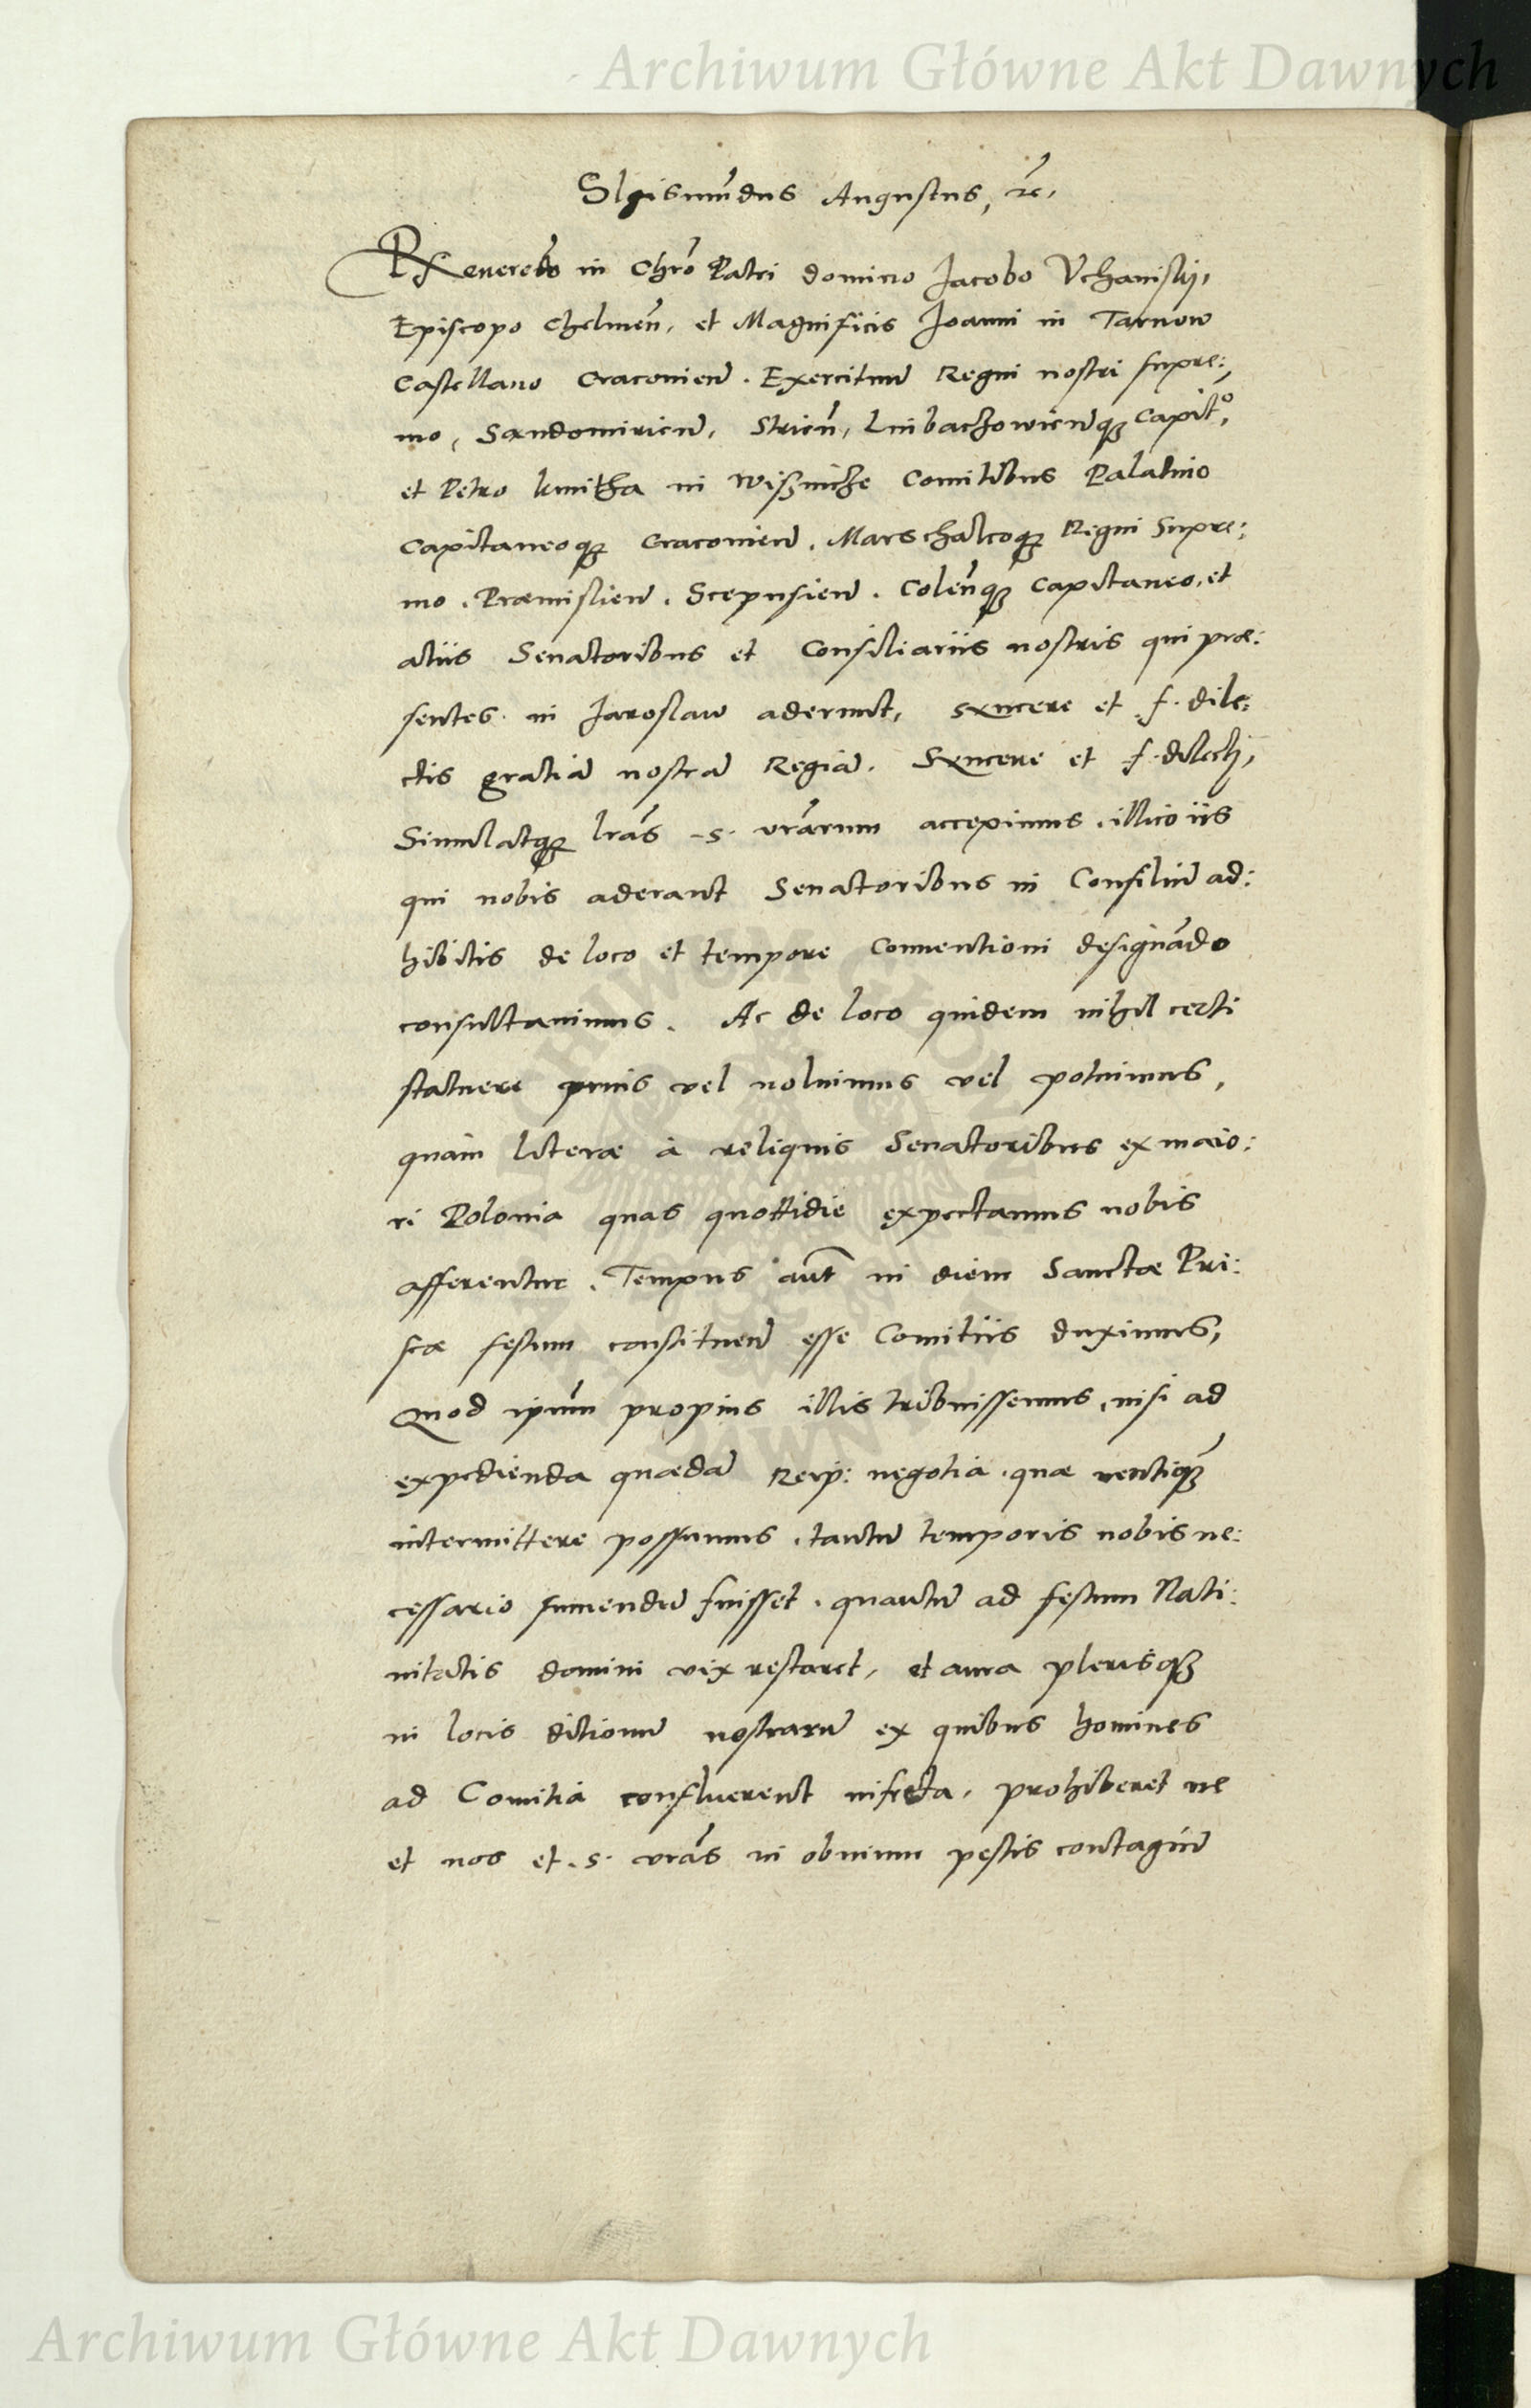 Archiwum Główne Akt Dawnych
Sigismūdus Augustus, rē.
Reverēdo in Chrō Patri domino Jacobo Vchanisky,
Episcopo Chelmeñ, et Magnificis Joanni in Tarnow
Castellano Cracovieñ. Exercituū Regni nostri supre:
mo, Sandomirieñ, Strieñ, Lubaczowieñqꝫ Capit.º,
et Petro kmitha in Wißnicze Comitibus Palatino
Capitaneoqꝫ Cracovieñ. Marschalcoqꝫ Regni Supre:
mo. Præmislieñ. Scepusieñ. Coleñqꝫ Capitaneo, et
aliis Senatoribus et Consiliariis nostris qui præ:
sentes in Jaroslaw aderunt, syncere et f. dile:
ctis gratiā nostrā Regiā. Syncere et f. dilecti,
Simulatqꝫ lrās s. vrārum accepimus, illico iis
qui nobis aderant Senatoribus in Consiliū ad:
hibitis de loco et tempore Conventioni designādo
consultavimus. Ac de loco quidem nihil certi
statuere prius vel voluimus vel potuimus,
quàm literæ à reliquis Senatoribus ex maio:
ri Polonia quas quottidie expectamus nobis
afferentur. Tempus aūt in diem Sanctæ Pri:
scæ festum constitueñ esse Comitiis duximus,
Quod ipsum propius illis tribuissemus, nisi ad
expedienda quædā Reip: negotia, quæ
intermittere possumus, tantū temporis nobis ne:
cessario sumendū fuisset, quantū ad festum Nati:
vitatis domini vix restaret, et aura plerisqꝫ
in locis ditionū nostrarū ex quibus homines
ad Comitia confluerent infecta, prohiberet ne
et nos et s. vrās in obvium pestis contagiū
Archiwum Główne Akt Dawnych